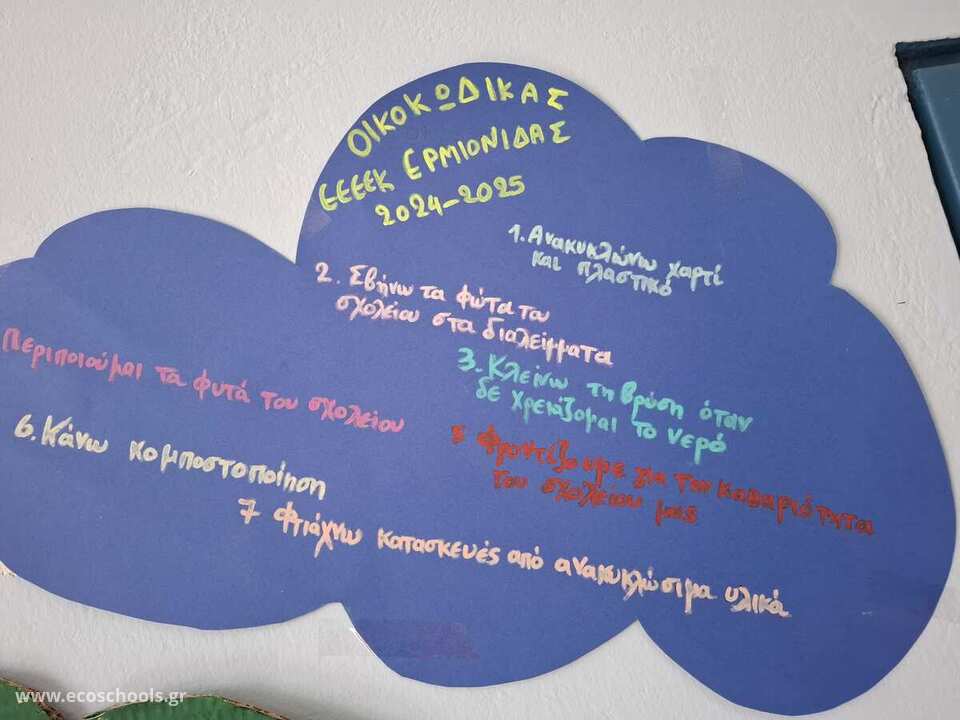 ΟΙΚΟΚΩΔΙΚΑΣ
ΕΕΕΕΚ ΕΡΜΙΟΝΙΔΑΣ
2024-2025
1. Ανακυκλώνω χαρτί
και πλαστικό
2. Σβήνω τα φώτα του
σχολείου στα διαλείμματα
3. Κλείνω τη βρύση όταν
δε χρειάζομαι το νερό
Περιποιούμαι τα φυτά του σχολείου
5 Φροντίζουμε για την καθαριότητα
του σχολείου μας
6. Κάνω κομποστοποίηση
7 Φτιάχνω κατασκευές από ανακυκλώσιμα υλικά
www.ecoschools.gr